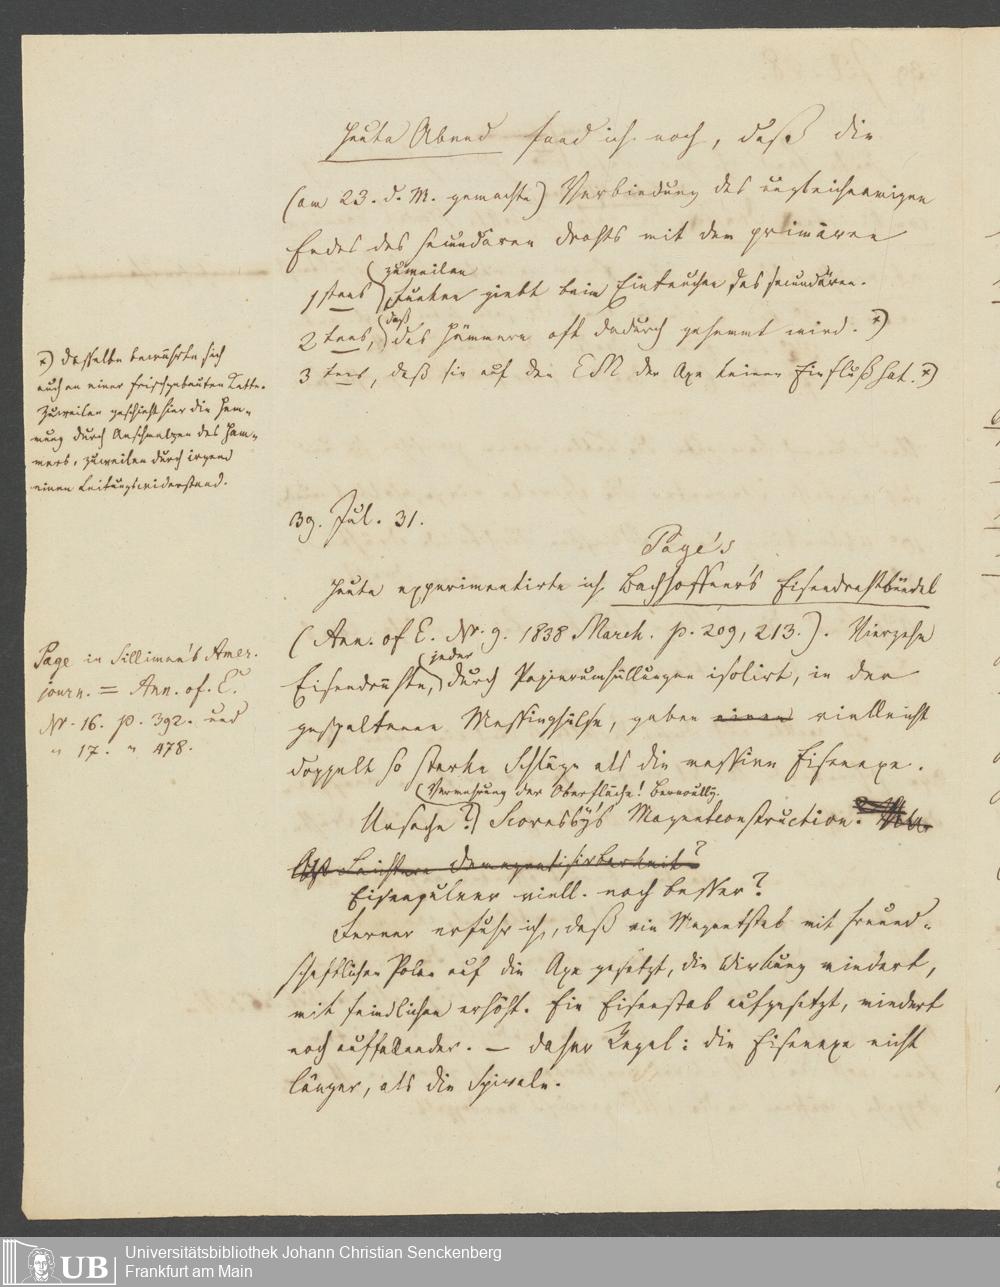 Heute Abend fand ich noch, daß die
(am 23. d. M. gemachte) Verbindung des ungleichnamigen
Endes des secundären Drahts mit dem primären
zuweilen
1stens Funken giebt beim Eintauchen des secundären.
daß
2tens, das Hämmern oft dadurch gehemmt wird. *)
3tens, daß sie auf den EM der Axe keinen Einfluß hat. *)
*) Dasselbe bewährte sich
auch an einer frischgebauten Kette.
Zuweilen geschieht hier die Hem-
mung durch Anschmelzen des Ham-
mers, zuweilen durch irgend
einen Leitungswiderstand.
39. Jul. 31.
Page's
Heute experimentirte ich Bachhoffner's Eisendrahtbündel
(Ann. of E. Nr. 9. 1838 March. p. 209, 213.). Vierzehn
jeder
Eisendrähte, durch Papierumhüllungen isolirt, in der
gespaltenen Messinghülse, gaben einen vielleicht
doppelt so starke Schläge als die massive Eisenaxe.
Page in Silliman's Amer.
journ. = Ann. of. E.
Nr. 16. p. 392. und
" 17. " 478.
Vermehrung der Oberfläche! Bernoully.
Ursache? Scoresby's Magnetconstruction.
Leichtere Demagnetisirbarkeit?
Eisenpulver viell. noch besser?
Ferner erfuhr ich, daß ein Magnetstab mit freund-
schaftlichen Polen auf die Axe gesetzt, die Wirkung mindert,
mit feindlichen erhöht. Ein Eisenstab aufgesetzt, mindert
noch auffallender. — Daher Regel: die Eisenaxe nicht
länger, als die Spirale.
UB
Universitätsbibliothek Johann Christian Senckenberg
Frankfurt am Main